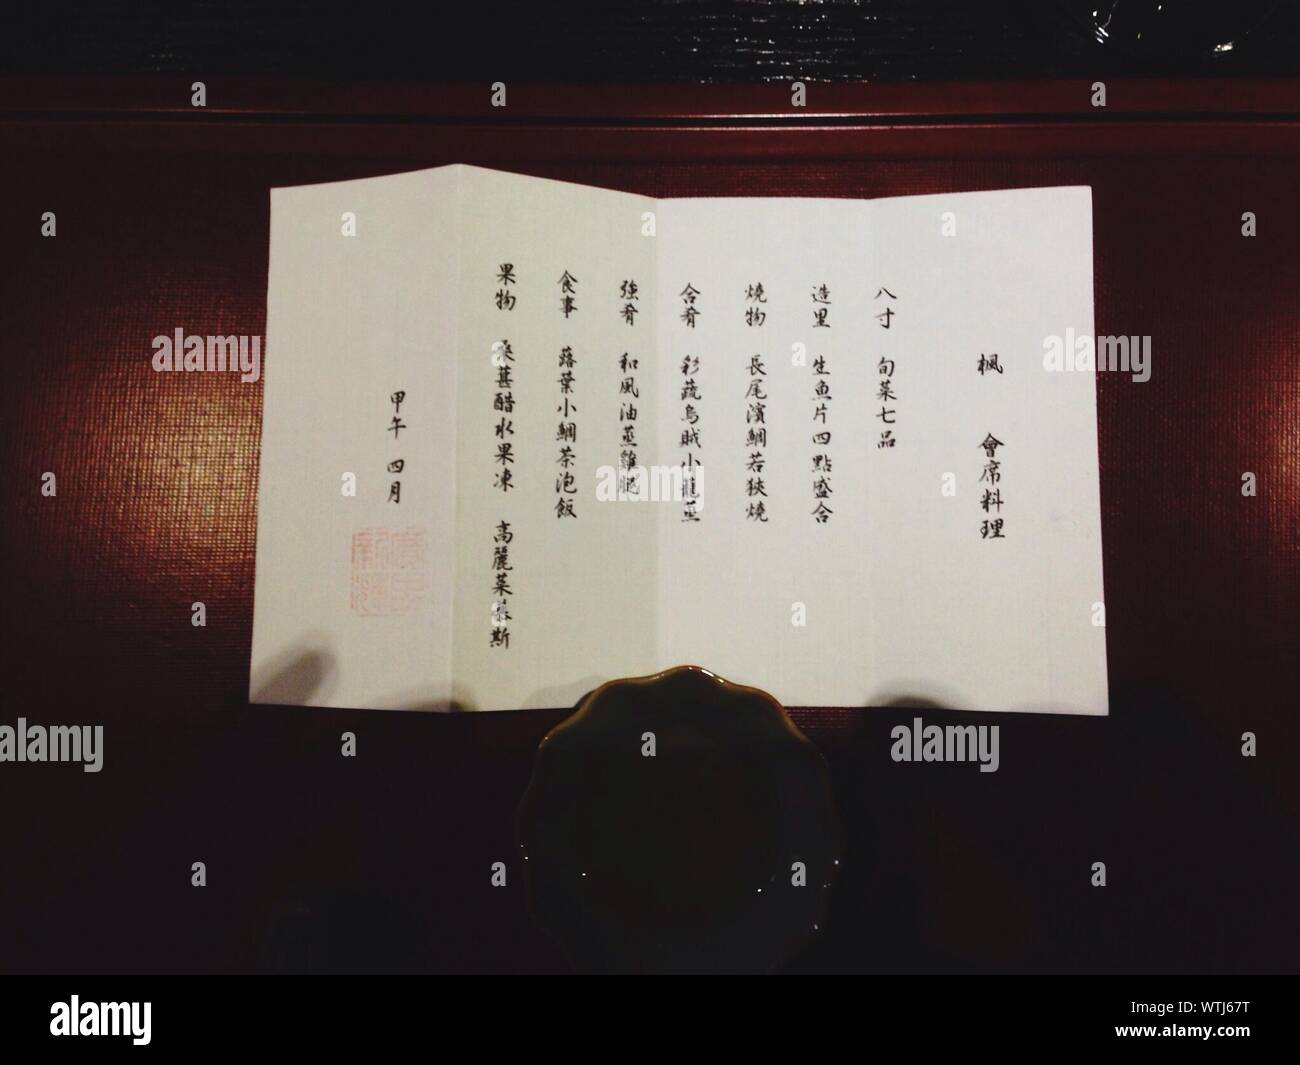 楓 會席料理
八寸 旬菜七品
造里 生魚片四點盛合
燒物 長尾濱鯛若狹燒
合肴 彩蔬烏賊小籠蒸
強肴 和風油蒸雞腿
食事 蕗葉小鯛茶泡飯
果物 桑葚醋水果凍 高麗菜慕斯
甲午 四月
alamy
Image ID: WTJ67T
www.alamy.com